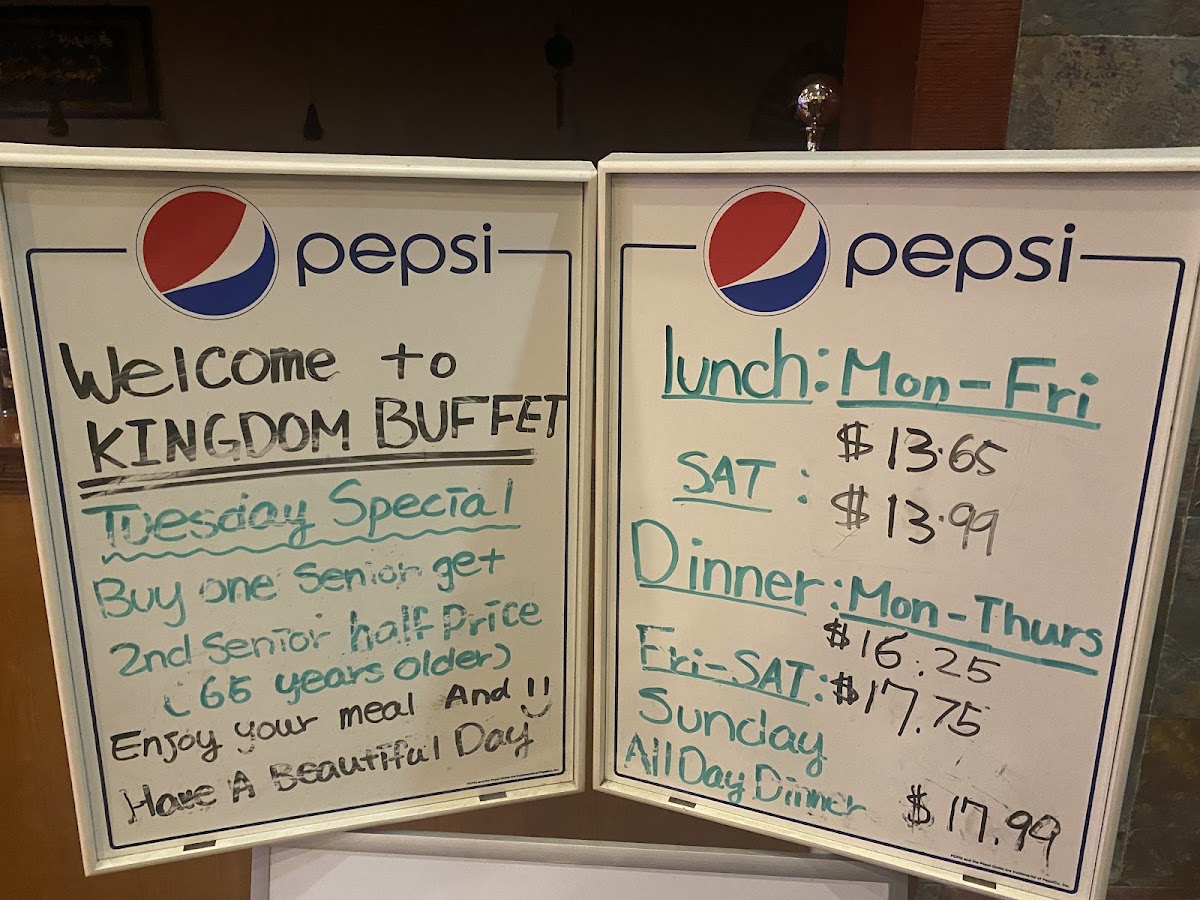 pepsi
Welcome to
KINGDOM BUFFET
Tuesday Special
Buy one Senior get
2nd Senior half Price
(65 years older)
Enjoy your meal And
Have A Beautiful Day
pepsi
lunch: Mon-Fri
$13.65
SAT: $13.99
Dinner: Mon-Thurs
$16.25
Fri-SAT: $17.75
Sunday
All Day Dinner $17.99